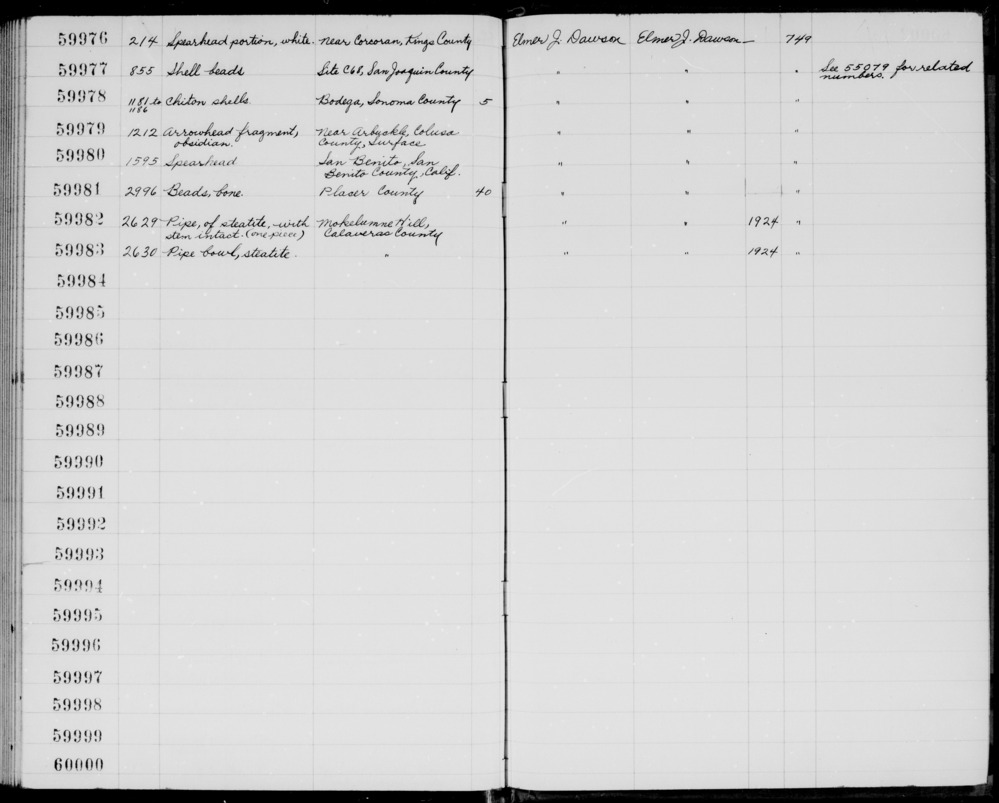 59976 214 Spearhead portion, white. Near Corcoran, Kings County Elmer J. Dawson Elmer J. Dawson 749
59977 855 Shell beads Site C68, San Joaquin County " " " See 55079 for related numbers.
59978 1181 to 1186 Chiton shells Bodega, Sonoma County 5 " " "
59979 1212 Arrowhead fragment, obsidian. Near Arbuckle, Colusa County, Surface " " "
59980 1595 Spearhead San Benito, San Benito County, Calif. " " "
59981 2996 Beads, bone. Placer County 40 " " "
59982 2629 Pipe, of steatite, with stem intact. (one piece) Mokelumne Hill, Calaveras County " " 1924 "
59983 2630 Pipe bowl, steatite. " " " 1924 "
59984
59985
59986
59987
59988
59989
59990
59991
59992
59993
59994
59995
59996
59997
59998
59999
60000